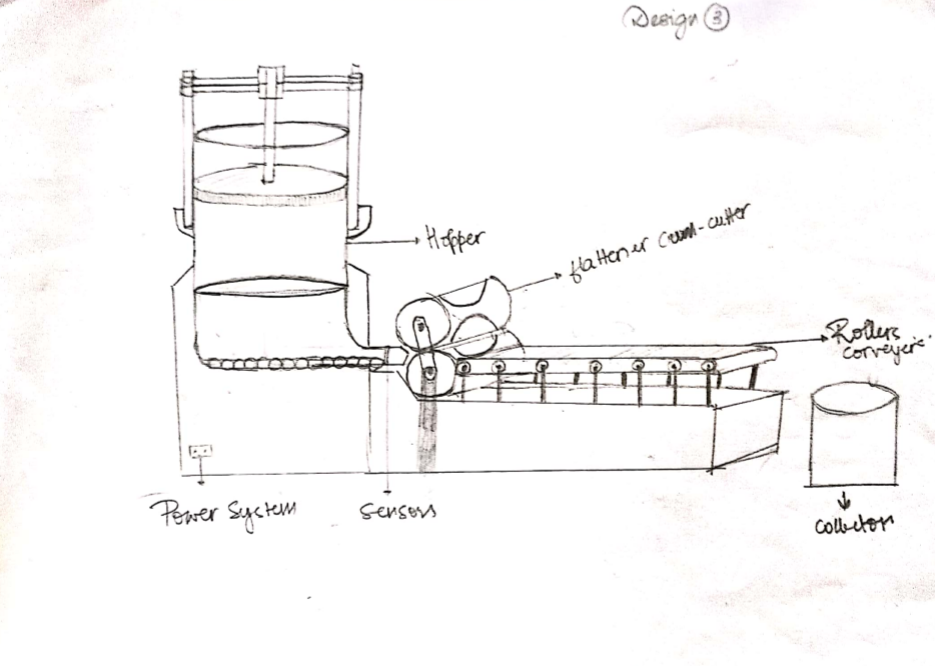 Design ③
Hopper
flattener cum-cutter
Rollers
conveyer
Power System
Sensors